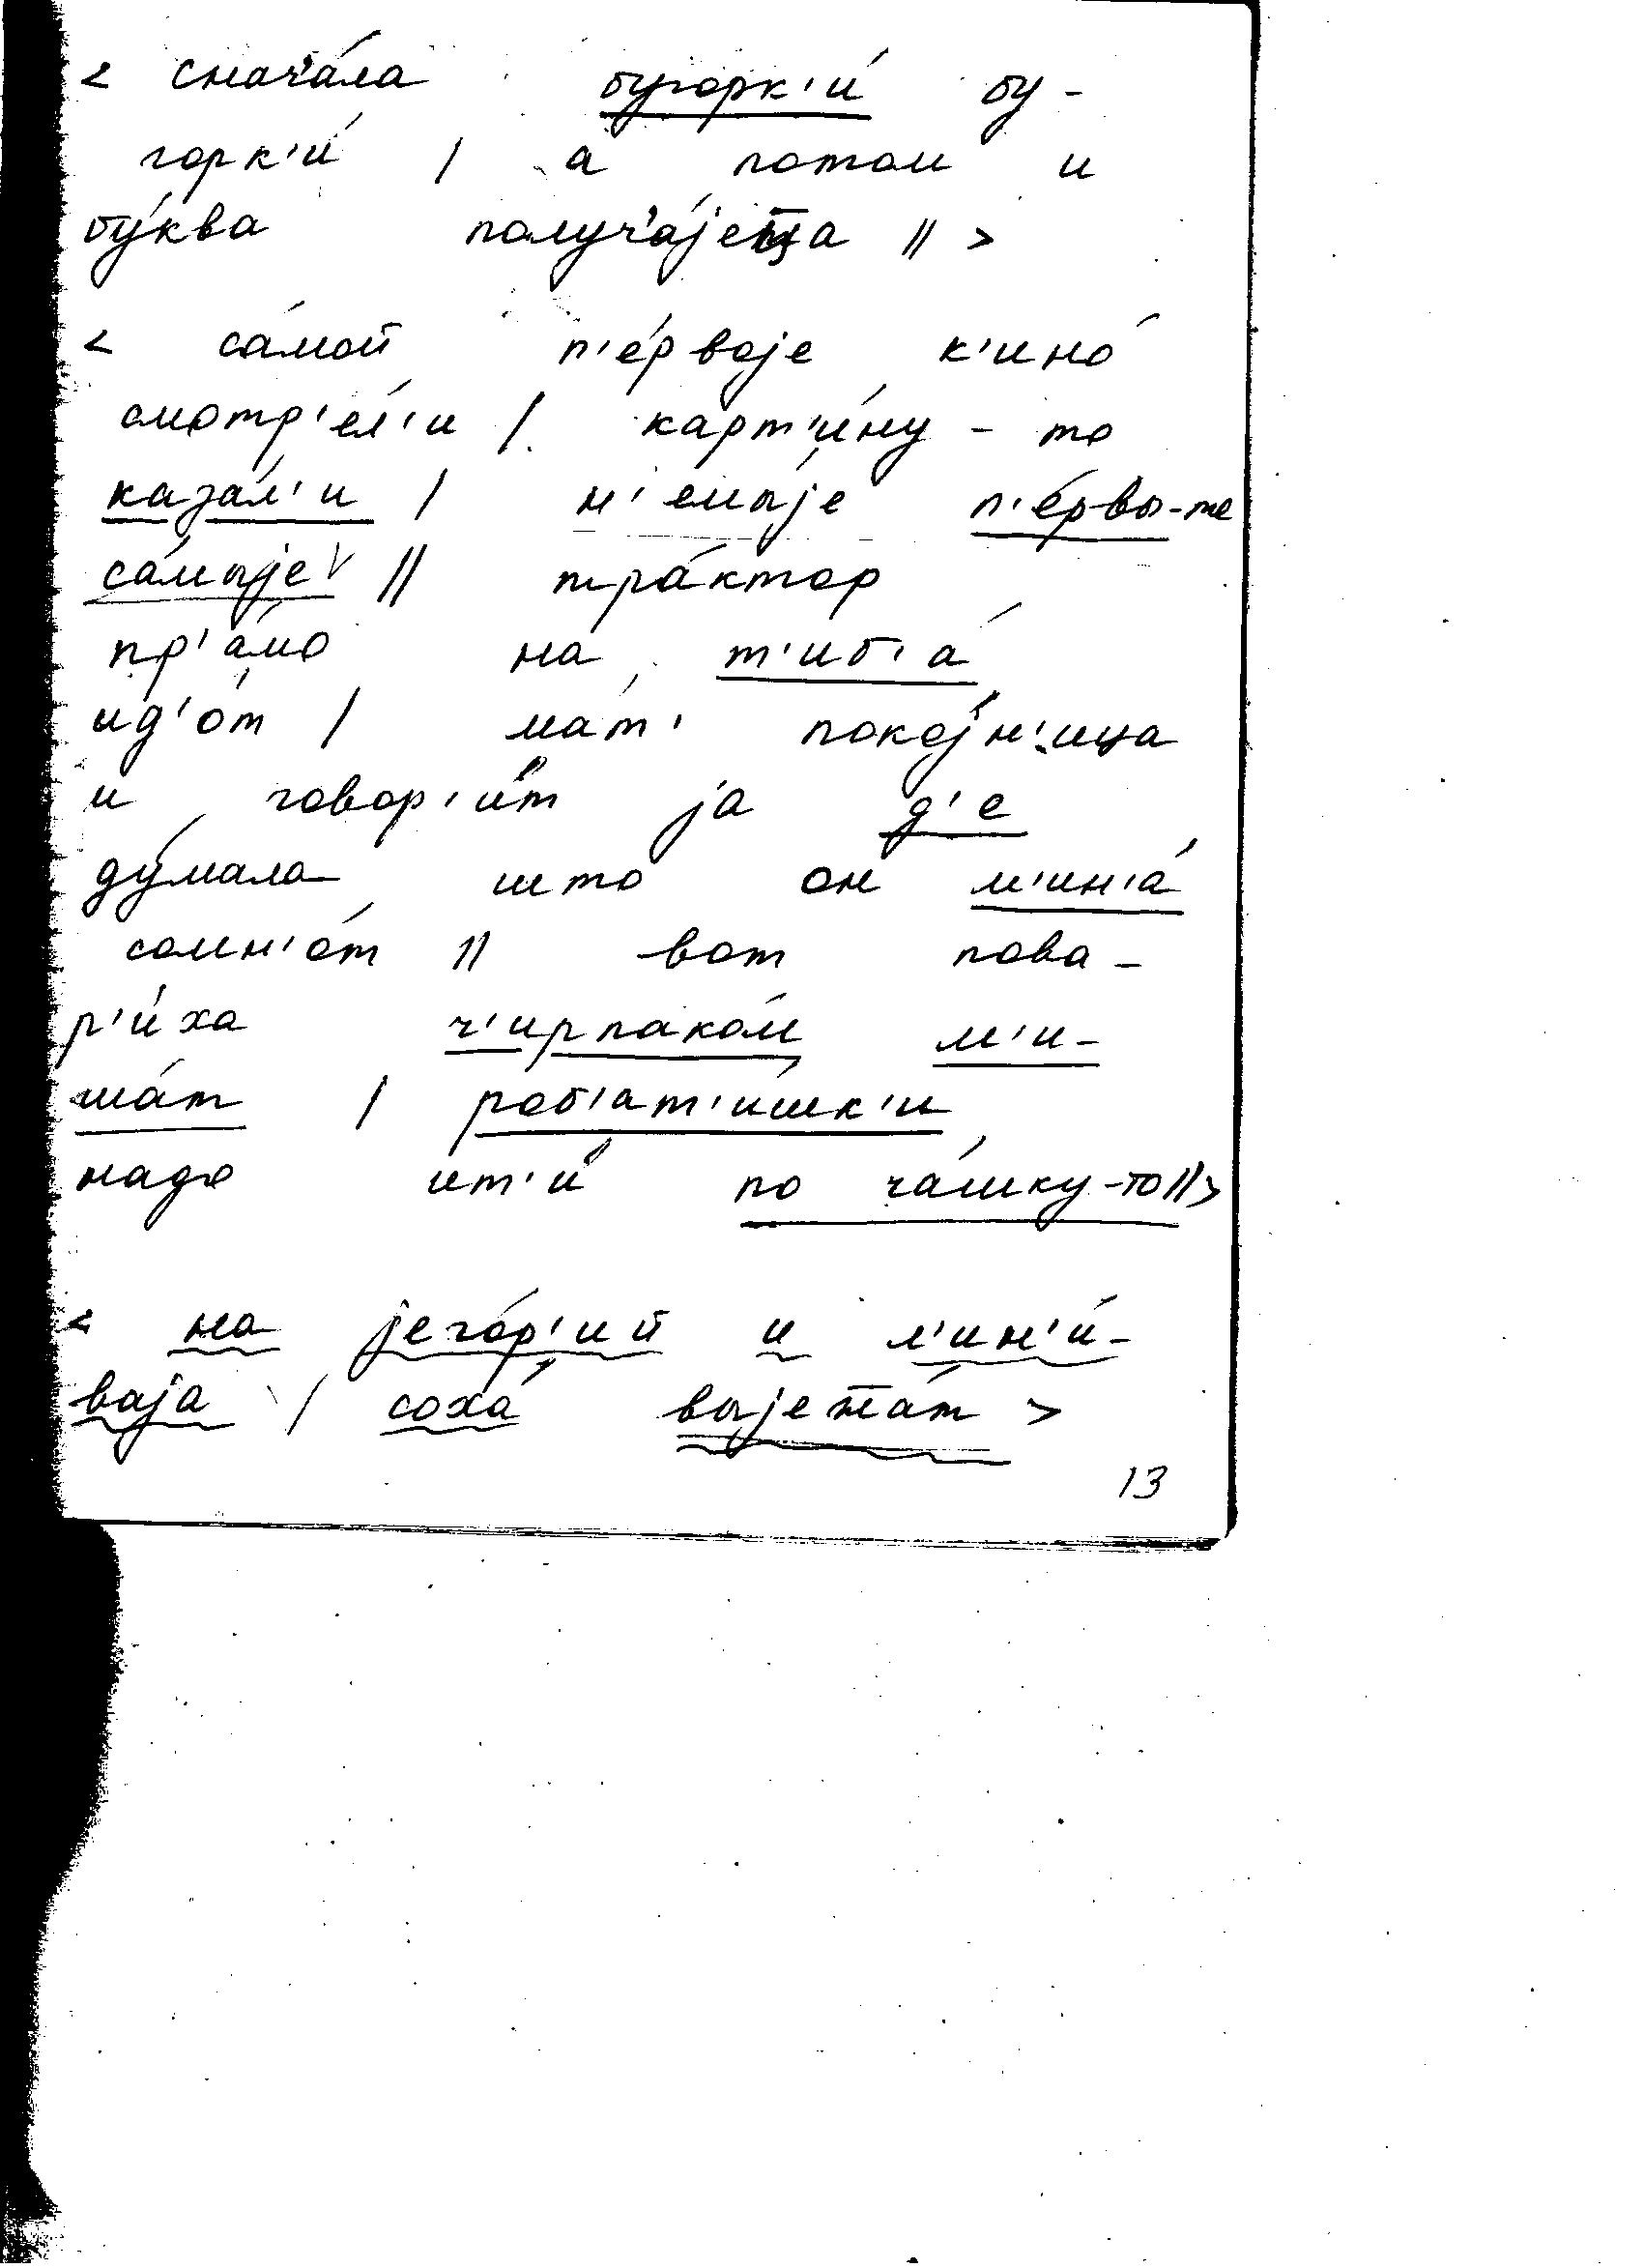 < снача́ла бугорк'и́ бу-
горк'и́ / а потом и
бу́ква получ'а́јеца // >
< са́мой п'е́рвоје к'ино́
смотр'е́л'и / карт'и́ну - то
каза́л'и / н'емы́је п'е́рвы-те
са́мыје // тра́ктор
пр'а́мо на т'иб'а́
ид'о́т / мат' поко́јн'ица
и говор'и́т ја д'е
ду́мала што он м'ин'а́
сомн'о́т // вот пова-
р'и́ха ч'ирпако́м м'и-
ша́т / роб'ат'и́шк'и
надо ит'и́ по ча́шку-то // >
< на јего́р'ий и л'ин'и́-
ваја / соха́ выјежа́т >
13